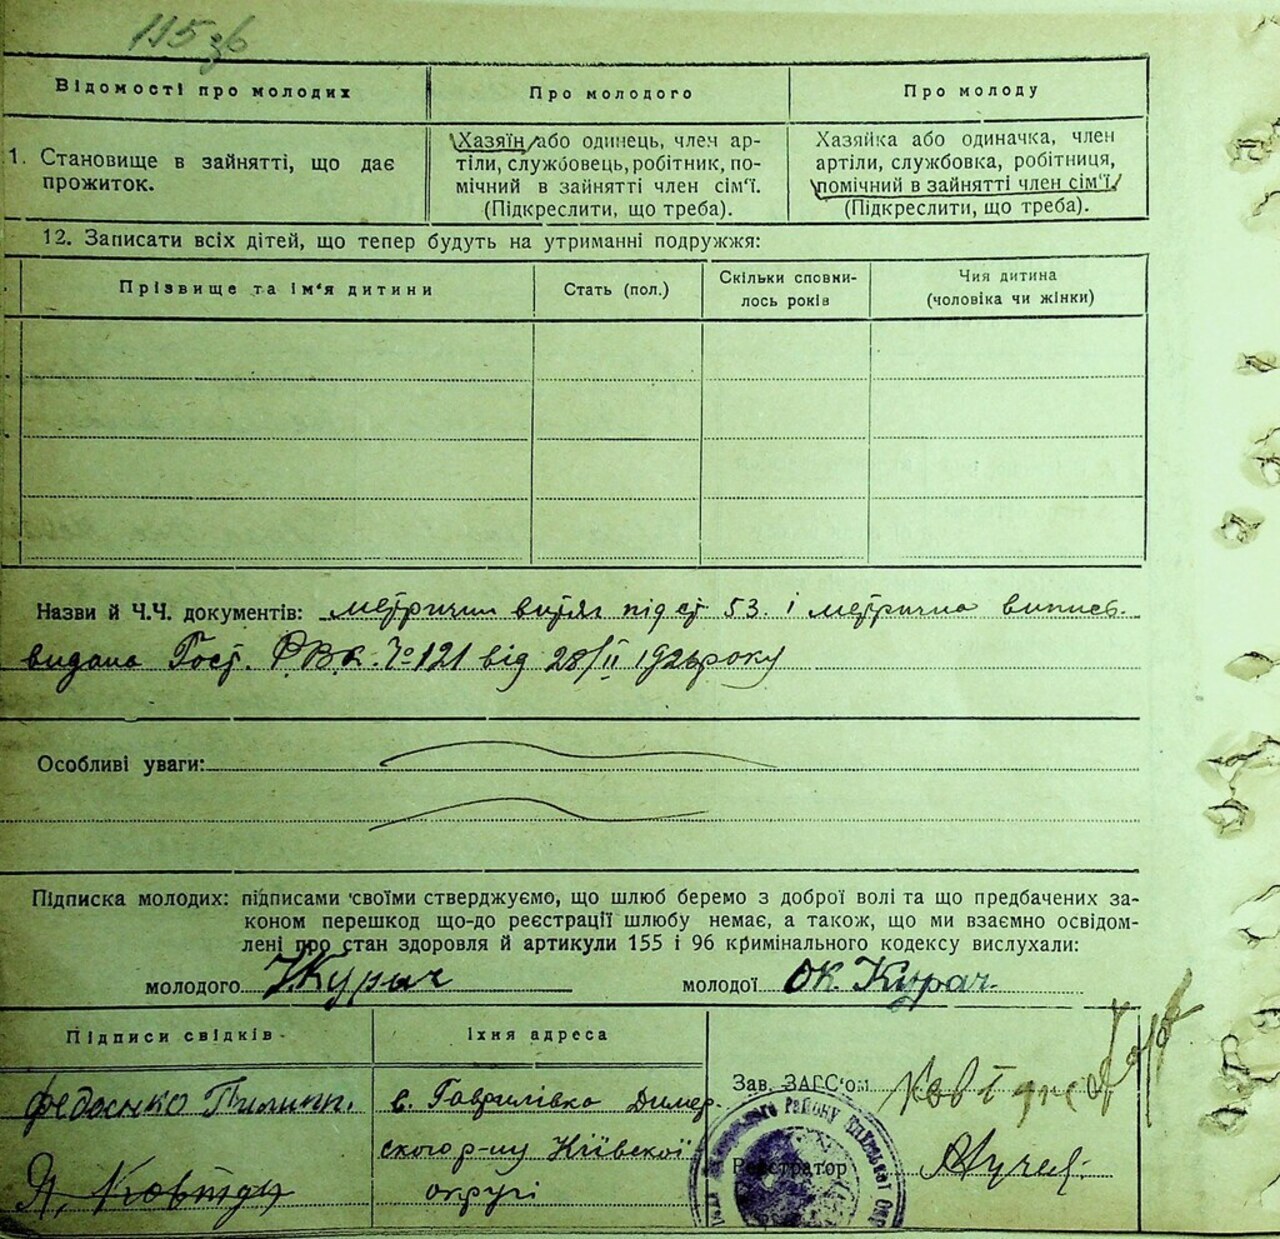 115 зв
Відомості про молодих
Про молодого
Про молоду
1. Становище в зайнятті, що дає
прожиток.
Хазяїн або одинець, член ар-
тіли, службовець, робітник, по-
мічний в зайнятті член сім'ї.
(Підкреслити, що треба).
Хазяйка або одиначка, член
артіли, службовка, робітниця,
помічний в зайнятті член сім'ї.
(Підкреслити, що треба).
12. Записати всіх дітей, що тепер будуть на утриманні подружжя:
Прізвище та ім'я дитини
Стать (пол.)
Скільки сповни-
лось років
Чия дитина
(чоловіка чи жінки)
Назви й Ч.Ч. документів: метричний витяг під ст. 53. і метрична випись
видана Гост. Р.В.К. № 121 від 28/II року
Особливі уваги:
Підписка молодих: підписами своїми стверджуємо, що шлюб беремо з доброї волі та що предбачених за-
коном перешкод що-до реєстрації шлюбу немає, а також, що ми взаємно освідом-
лені про стан здоровля й артикули 155 і 96 кримінального кодексу вислухали:
молодого Курач молодої Ок. Курач.
Підписи свідків
Їхня адреса
Федоєнко Пилип.
с. Гаврилівка Димер-
ского р-ну Київскої
округі
Зав. ЗАГС'ом
Реєстратор
Району Київської Окр